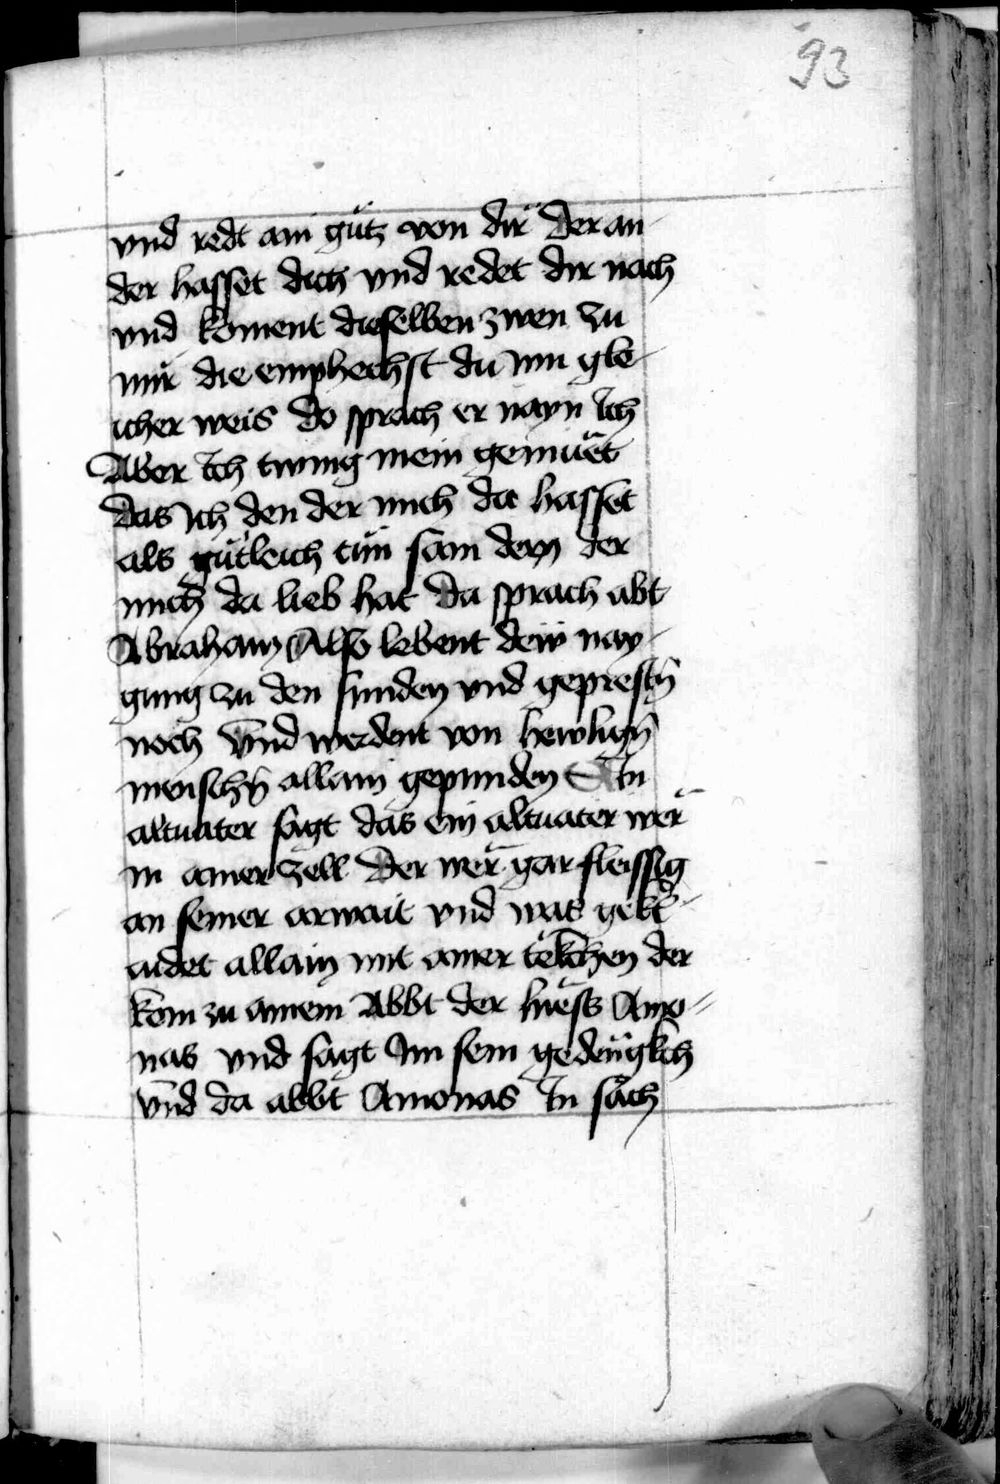 93
vnd redt ain gůtz von dir Der an-
der hasset dich vnd redet dir nach
vnd koment dieselben zwen zu
mir die emphechst du inn gle-
icher weis Do sprach er nayn Ich
Aber Ich twing mein gemuet
das Ich den der mich da hasset
als gůtleich tůn sam dem der
mich da lieb hat Da sprach abt
Abraham Also lebent deÿ nay-
gung zu den sunden vnd geprestn̄
noch Vnd werdent von heylign̄
menschn̄ allain gepunden Ain
altuater sagt das ein altuater wer
in ainer Zell Der wer gar fleissig
an seiner arwait vnd was gekl-
aidet allain mit ainer tekchen der
kom zu ainem Abbt der hiess Amo-
nas vnd sagt Im sein gedengkch
Vnd da abbt Amonas In sach